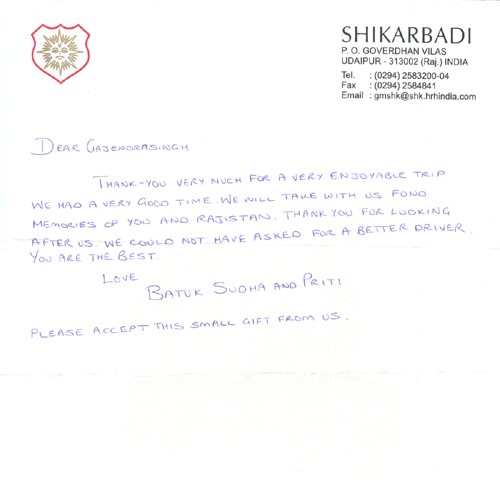 SHIKARBADI
P. O. GOVERDHAN VILAS
UDAIPUR - 313002 (Raj.) INDIA
Tel. : (0294) 2583200-04
Fax : (0294) 2584841
Email : gmshk@shk.hrhindia.com
DEAR GAJENDRASINGH
THANK-YOU VERY MUCH FOR A VERY ENJOYABLE TRIP
WE HAD A VERY GOOD TIME. WE WILL TAKE WITH US FOND
MEMORIES OF YOU AND RAJISTAN. THANK YOU FOR LOOKING
AFTER US. WE COULD NOT HAVE ASKED FOR A BETTER DRIVER.
YOU ARE THE BEST.
LOVE
BATUK SUDHA AND PRITI
PLEASE ACCEPT THIS SMALL GIFT FROM US.